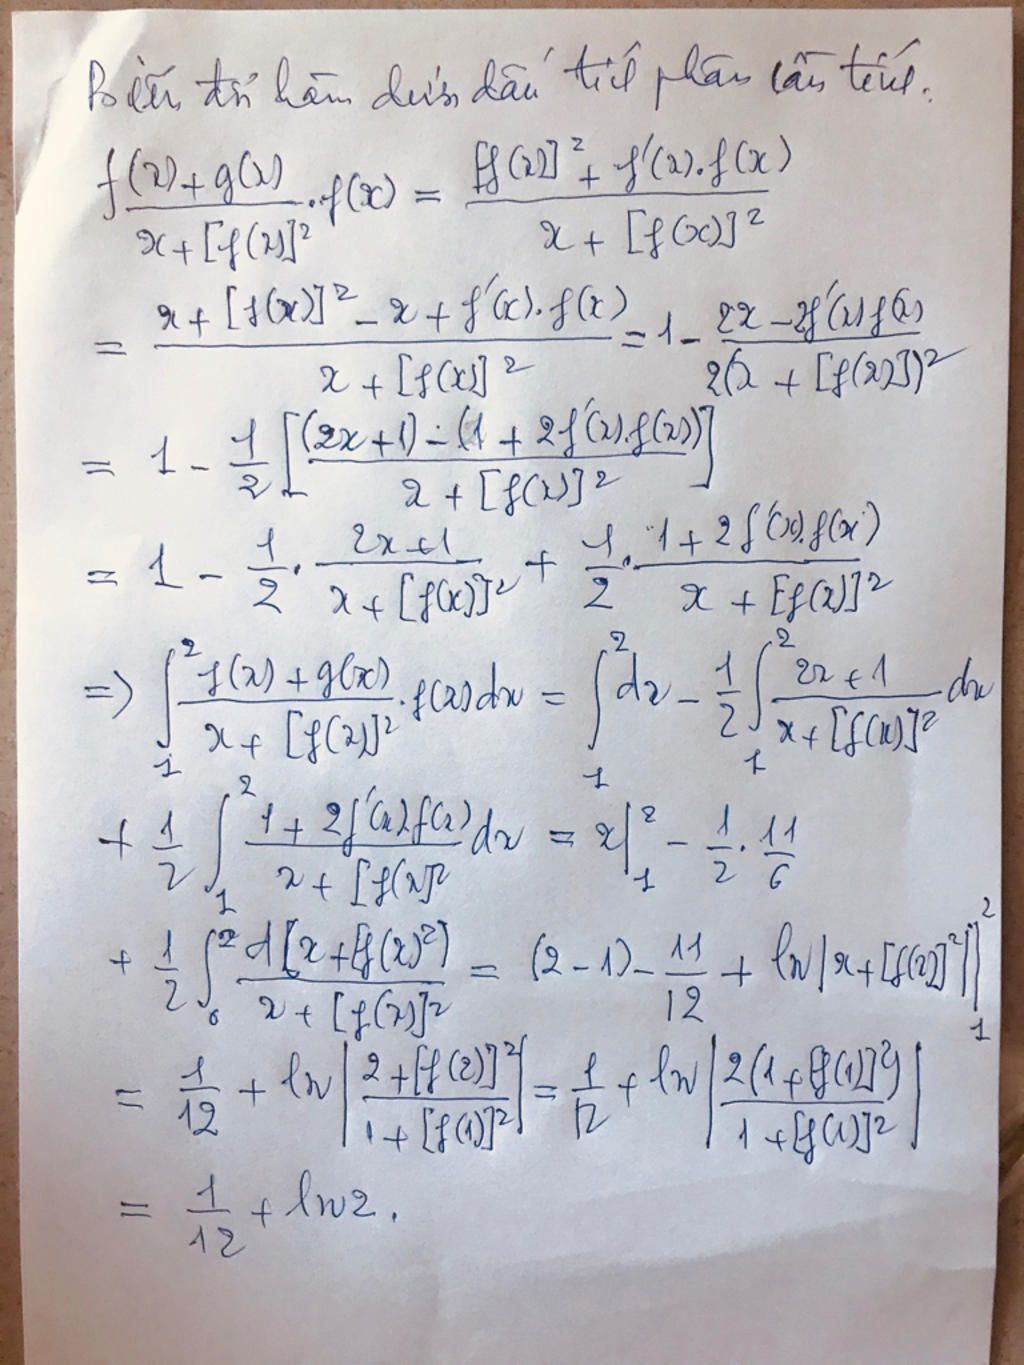 Biến đổi hàm dưới dấu tích phân cần tính.
f(x)+g(x)/x+[f(x)]² . f(x) = [f(x)]² + f'(x).f(x)/x + [f(x)]²
= x + [f(x)]² - x + f'(x).f(x)/x + [f(x)]² = 1 - 2x - 2f'(x)f(x)/2(x + [f(x)])²
= 1 - 1/2 [(2x+1) - (1 + 2f'(x).f(x))/x + [f(x)]²]
= 1 - 1/2 . 2x+1/x+[f(x)]² + 1/2 . 1+2f'(x).f(x)/x + [f(x)]²
=> ∫₁² f(x)+g(x)/x+[f(x)]² . f(x)dx = ∫₁² dx - 1/2 ∫₁² 2x+1/x+[f(x)]² dx
+ 1/2 ∫₁² 1+2f'(x)f(x)/x+[f(x)]² dx = x|₁² - 1/2 . 11/6
+ 1/2 ∫₀² d[x+[f(x)²]/x+[f(x)]² = (2-1) - 11/12 + ln|x+[f(x)]²||₁²
= 1/12 + ln|2+[f(2)]²/1+[f(1)]²| = 1/12 + ln|2(1+[f(1)]²)/1+[f(1)]²|
= 1/12 + ln2.